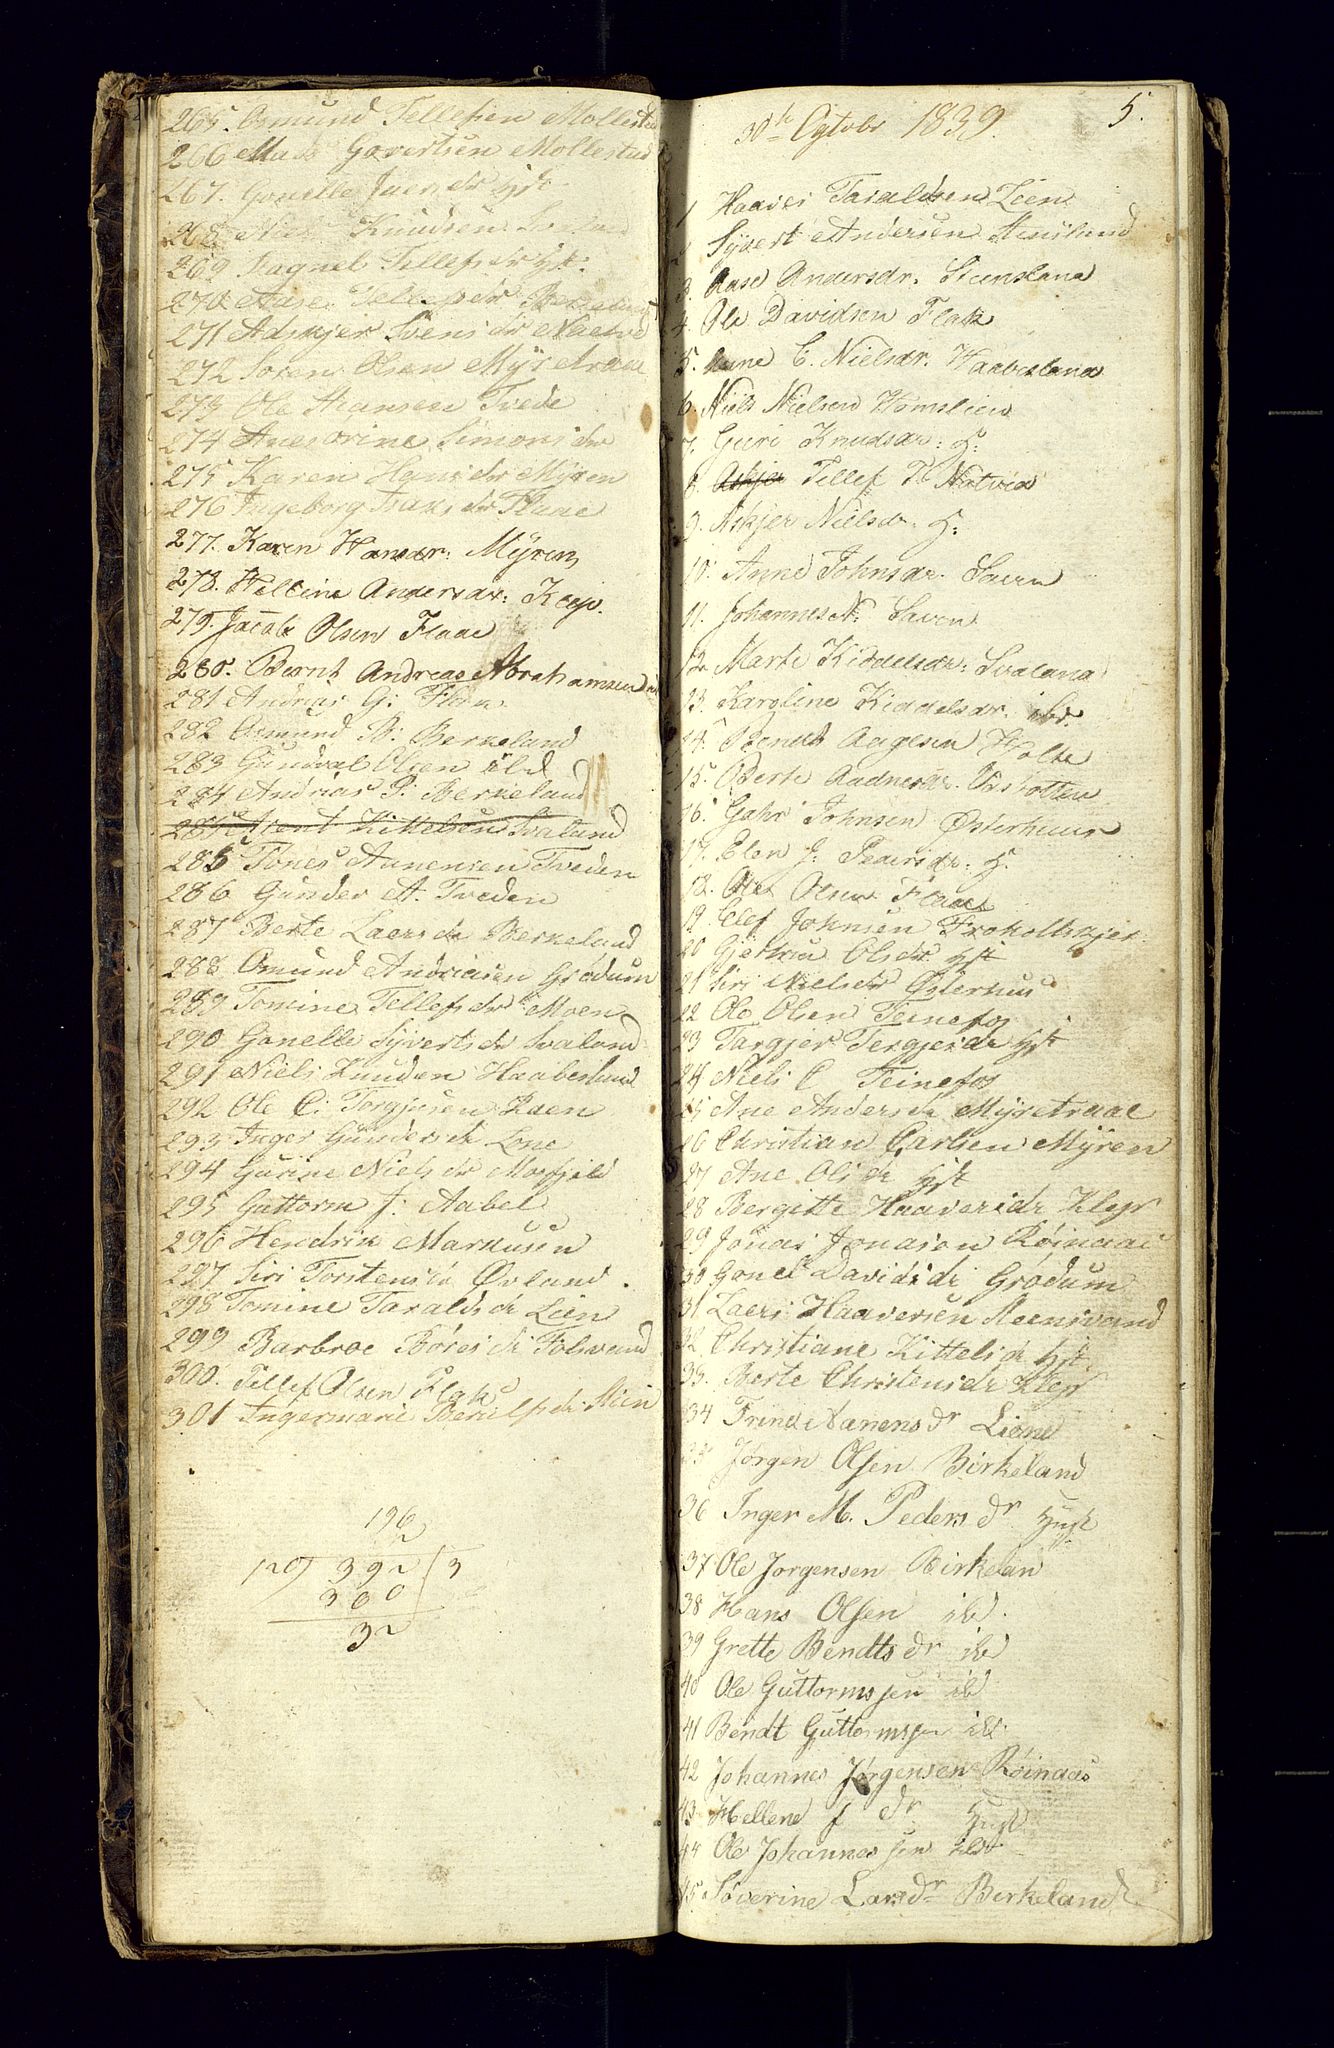 265. Osmund Tellefsen Mollestad
266 Mads Govertsen Mollestad
267. Gonelle Jaensdr Hst.
268 Niels Knudsen
269 Ragnel Tellefsdr Hst:
270 Aase Tellefsdr Berkeland
271 Adskjer Svensdr Natve
272 Soren Olsen Myretraae
273 Ole Hansen Tvede
274 Anesorine Simonsdr
275 Karen Hansdr Myren
276 Ingeborg Isaksdr Flaae
277. Karen Hansdr: Myren
278. Helleine Andersdr: Klep.
279. Jacob Olsen Flaae
280. Bernt Andreas Abrahamsen
281 Andrias G: Flaa
282 Osmund B: Berkeland
283 Gundval Olsen ibd
284 Andrias P: Berkeland
285 Arent Kittelsen Svaland
285 Tönes Aanensen Tveden
286 Gunder A. Tveden
287 Berte Laersdr Berkeland
288 Osmund Andriasen Grödum
289 Tomine Tellefsdr Moen
290 Gonelle Syvertsdr Svaland
291 Niels Knuden Haabesland
292 Ole C: Torgjusen Raen
293 Inger Gundersdr Lone
294 Gurine Nielsdr Mosfjeld
295 Guttorm J: Aabel
296 Hendrik Markusen
297 Siri Torstensdr Øvland.
298 Tomine Taraldsdr Lien
299 Barbroe Böresdr Folsvand
300. Tellef Olsen Flak
301 Ingermarie Berulfsdr Mien
196
2
120) 392 (3
360
32
30te Ogtobr 1839.
5.
1 Haaver Taraldsen Lien
2 Syvert Andersen Stensland
3. Aase Andersdr. Steensland
4. Ole Davidsen Flak
5. Anne C. Nielsdr. Haabesland
6. Niels Nielsen Homslien
7. Guri Knudsdr: H:
8. Askjer Tellef K Natvid
9. Askjer Nielsdr. H:
10. Anne Johnsdr. Saven
11. Johannes N: Saven
12. Marte Kiddelsdr. Svaland
13. Karoline Kiddelsdr. ibd.
14. Bendt Aagesen Holte
15. Berte Aadnesdr. Vasbotten
16. Gahr Johnsen Østerhuus
17. Elen J: Pedersdr. H.
18. Ole Olsen Flaae
19. Elef Johnsen Frokollskjer
20 Gjertrud Olsdr Hst
21 Siri Nielsdr Østerhus
22 Ole Olsen Teinefos
23 Targjer Tergjersdr Hst
24 Niels C Teinefos
25 Ane Andersdr Myretraae
26 Christian Carlsen Myren
27 Ane Olsdr Hst
28 Bergitte Haaversdr Klep
29 Jonas Jonasen Röinaas
30 Gonel Davidsdr Grödum
31 Laers Haaversen Meensvand
32 Christiane Kittelsdr Hst
33. Berte Christensdr Klep
34 Trine Aanensdr Liene
35 Jørgen Olsen Birkeland
36 Inger M. Pedersdr Hust
37 Ole Jorgensen Birkelan
38 Hans Olsen ibd.
39 Grette Bendtsdr ibd
40 Ole Guttormssen ibd
41 Bendt Guttormssen ibd.
42 Johannes Jørgensen Röinaas
43 Hellene J dr Hust
44 Ole Johannessen ibd
45. Söverine Larsdr Birkeland